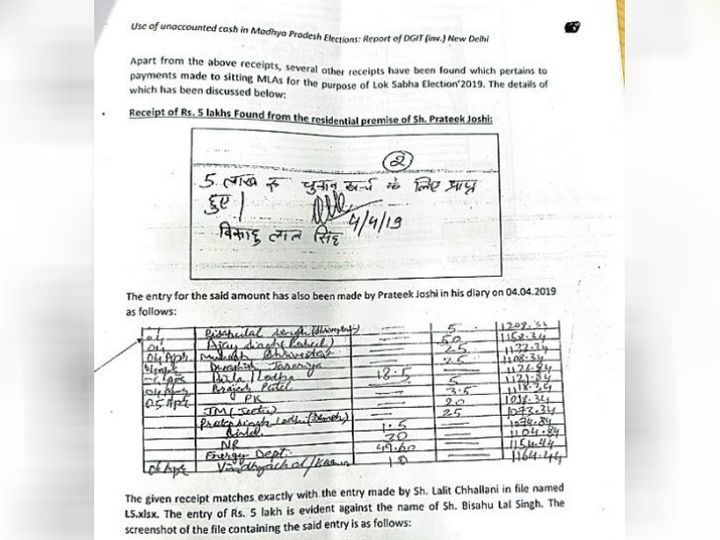 Use of unaccounted cash in Madhya Pradesh Elections: Report of DGIT (inv.) New Delhi
Apart from the above receipts, several other receipts have been found which pertains to
payments made to sitting MLAs for the purpose of Lok Sabha Election'2019. The details of
which has been discussed below:
Receipt of Rs. 5 lakhs Found from the residential premise of Sh. Prateek Joshi:
2
5 लाख रु चुनाव खर्च के लिए प्राप्त
हुए।
4/4/19
लाल सिंह
The entry for the said amount has also been made by Prateek Joshi in his diary on 04.04.2019
as follows:
5 1208.34
Ajay 50 1158.34
04 Apr 25
25 1108.34
18.5
Birla / Lodha 5
04 Apr Brajesh Patel 3.5 1118.34
05 Apr PK 20 1098.34
JM 25 1073.34
1.5
Birla 30 1104.84
NR 49.60 1154.44
Energy Dept. 10 1164.44
The given receipt matches exactly with the entry made by Sh. Lalit Chhallani in file named
LS.xlsx. The entry of Rs. 5 lakh is evident against the name of Sh. Bisahu Lal Singh. The
screenshot of the file containing the said entry is as follows: